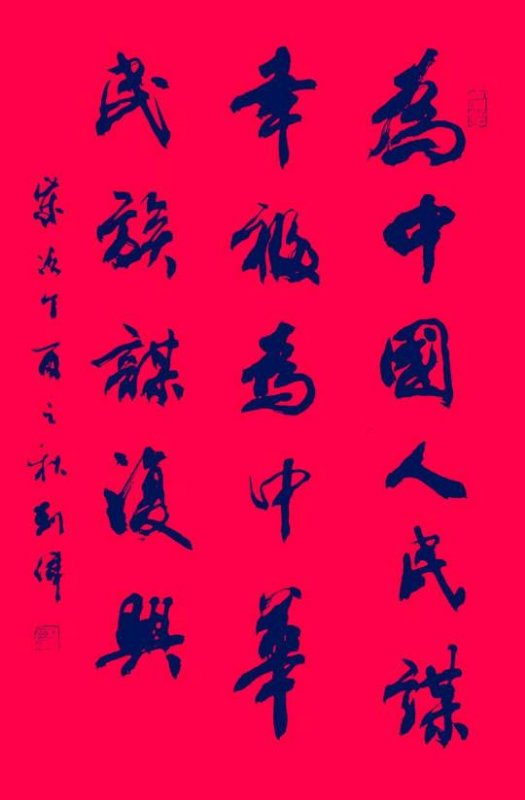 為中國人民謀
幸福為中華
民族謀復興
歲次丁酉之秋劉偉